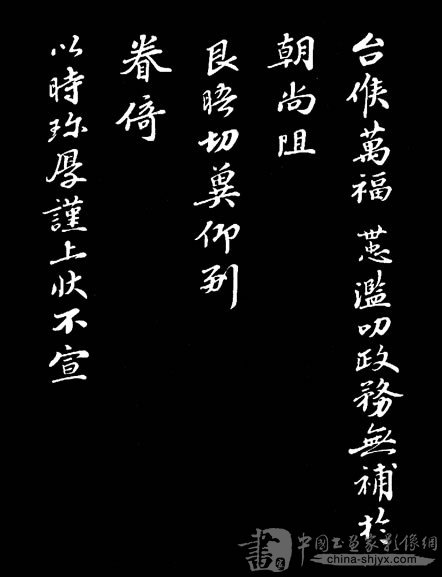 台候萬福 濫叨政務無補於
朝尚阻
良晤切冀仰副
眷倚
以時珎厚謹上狀不宣
中國书画家影像網
china-shjyx.com